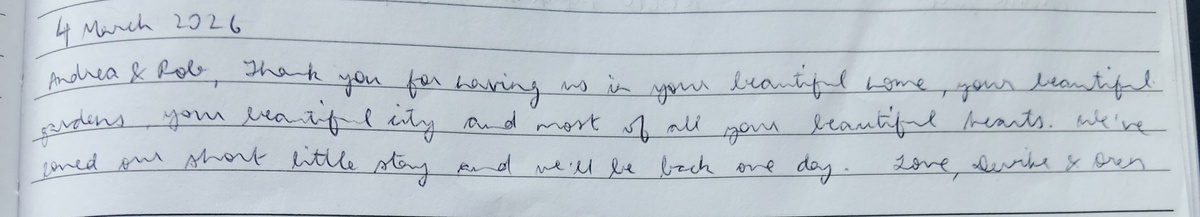 4 March 2026
Andrea & Rob, Thank you for having us in your beautiful home, your beautiful
gardens, your beautiful city and most of all your beautiful hearts. We've
loved our short little stay and we'll be back one day. Love, & Oren